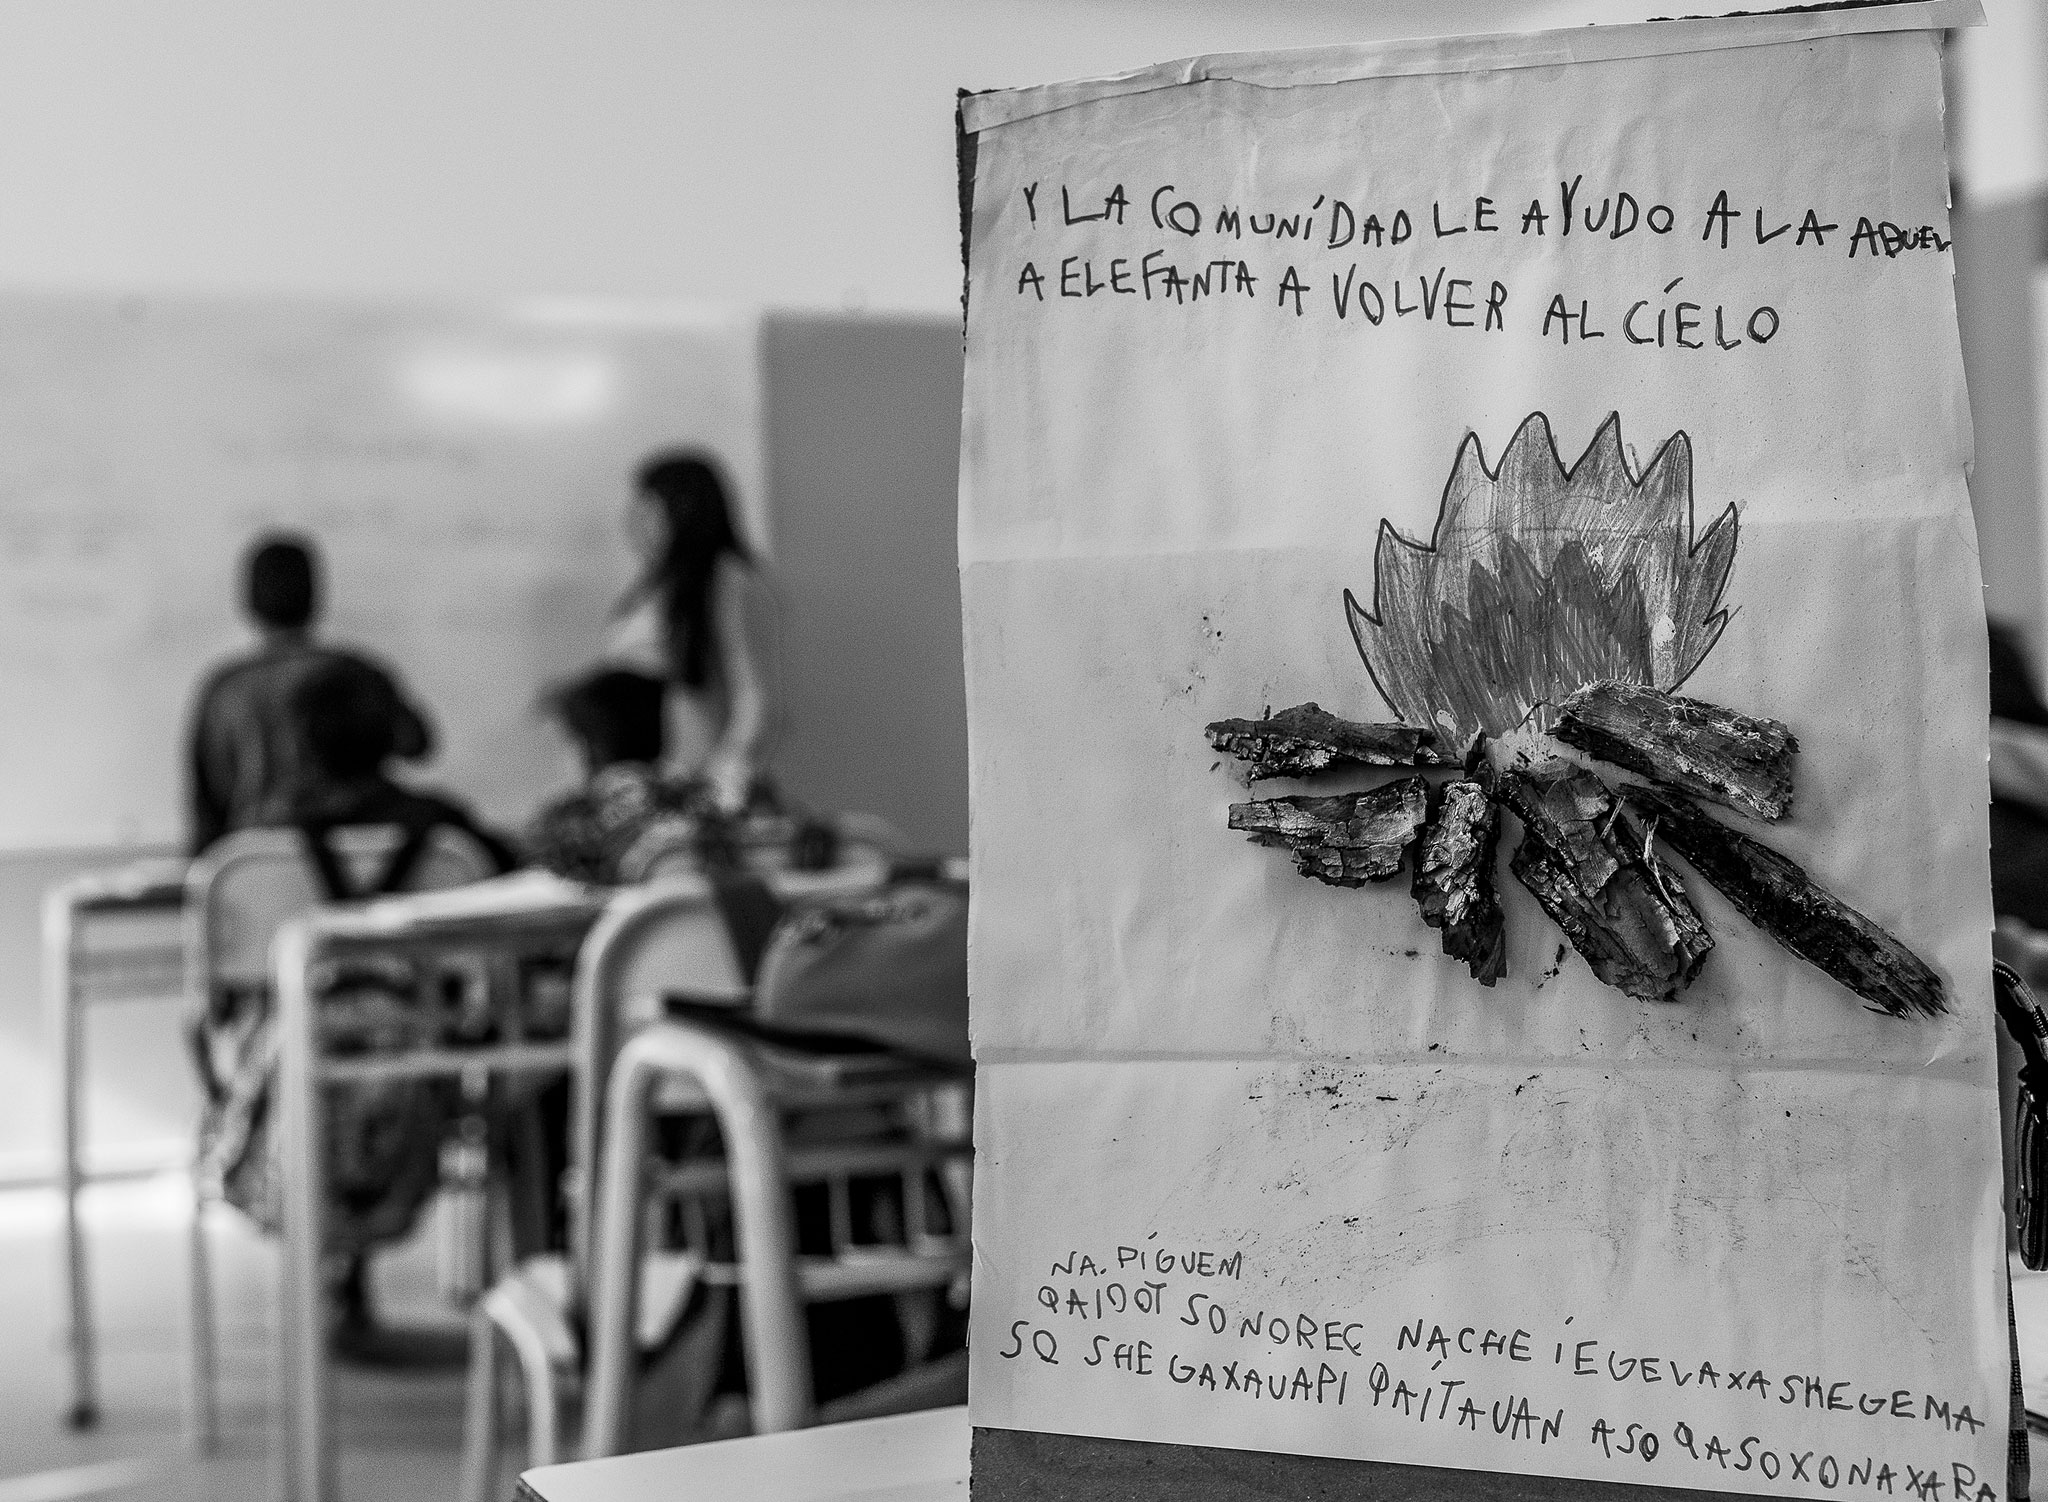 Y LA COMUNíDAD LE AYUDO A LA ABUEL
A ELEFANTA A VOLVER AL CíELO
NA. PíGUEM
QAIDOT SO NOREC NACHE íEGELAXASHEGEMA
SQ SHEGAXAUAPI QAíTAUAN ASO QASOXONAXARA